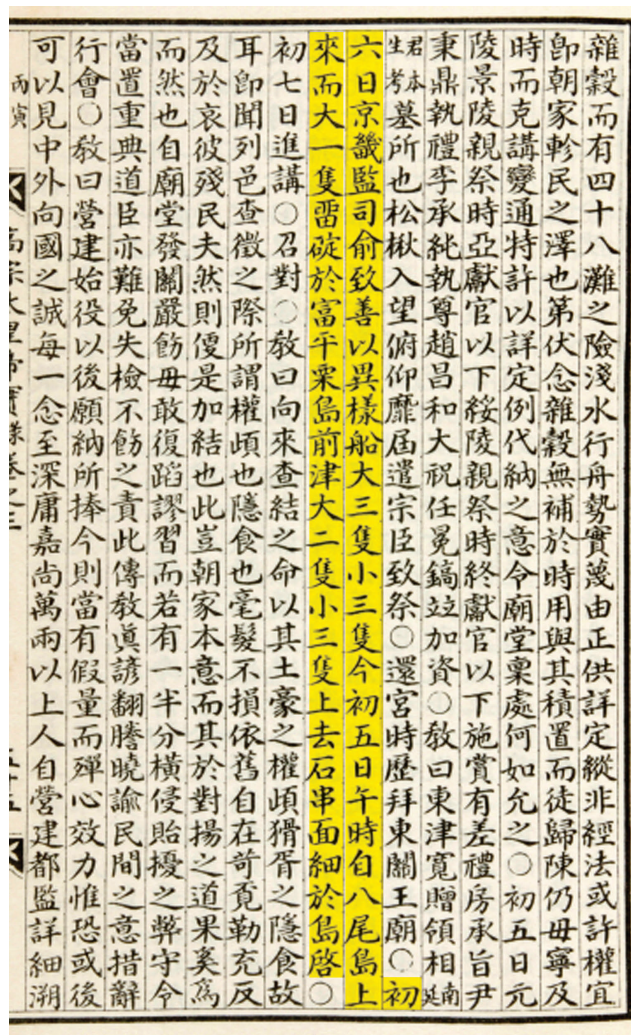 雜穀而有四十八灘之險淺水行舟勢實蔑由正供詳定縱非經法或許權宜
卽朝家軫民之澤也第伏念雜穀無補於時用與其積置而徒歸陳仍毋寧及
時而克講變通特許以詳定例代納之意令廟堂稟處何如允之〇初五日元
陵景陵親祭時亞獻官以下綏陵親祭時終獻官以下施賞有差禮房承旨尹
秉鼎執禮李承純執尊趙昌和大祝任冕鎬竝加資〇敎曰東津寬贈領相南延
君本生考墓所也松楸入望俯仰靡屆遣宗臣致祭〇還宮時歷拜東關王廟〇初
六日京畿監司兪致善以異樣船大三隻小三隻今初五日午時自八尾島上
來而大一隻留碇於富平栗島前津大二隻小三隻上去石串面細於島啓〇
初七日進講〇召對〇敎曰向來查結之命以其土豪之權頉猾胥之隱食故
耳卽聞列邑查徵之際所謂權頉也隱食也毫髮不損依舊自在苛覔勒充反
及於哀彼殘民夫然則便是加結也此豈朝家本意而其於對揚之道果奚爲
而然也自廟堂發關嚴飭毋敢復蹈謬習而若有一半分橫侵貽擾之弊守令
當置重典道臣亦難免失檢不飭之責此傳敎眞諺翻謄曉諭民間之意措辭
行會〇敎曰營建始役以後願納所捧今則當有假量而殫心效力惟恐或後
可以見中外向國之誠每一念至深庸嘉尙萬兩以上人自營建都監詳細溯
丙寅